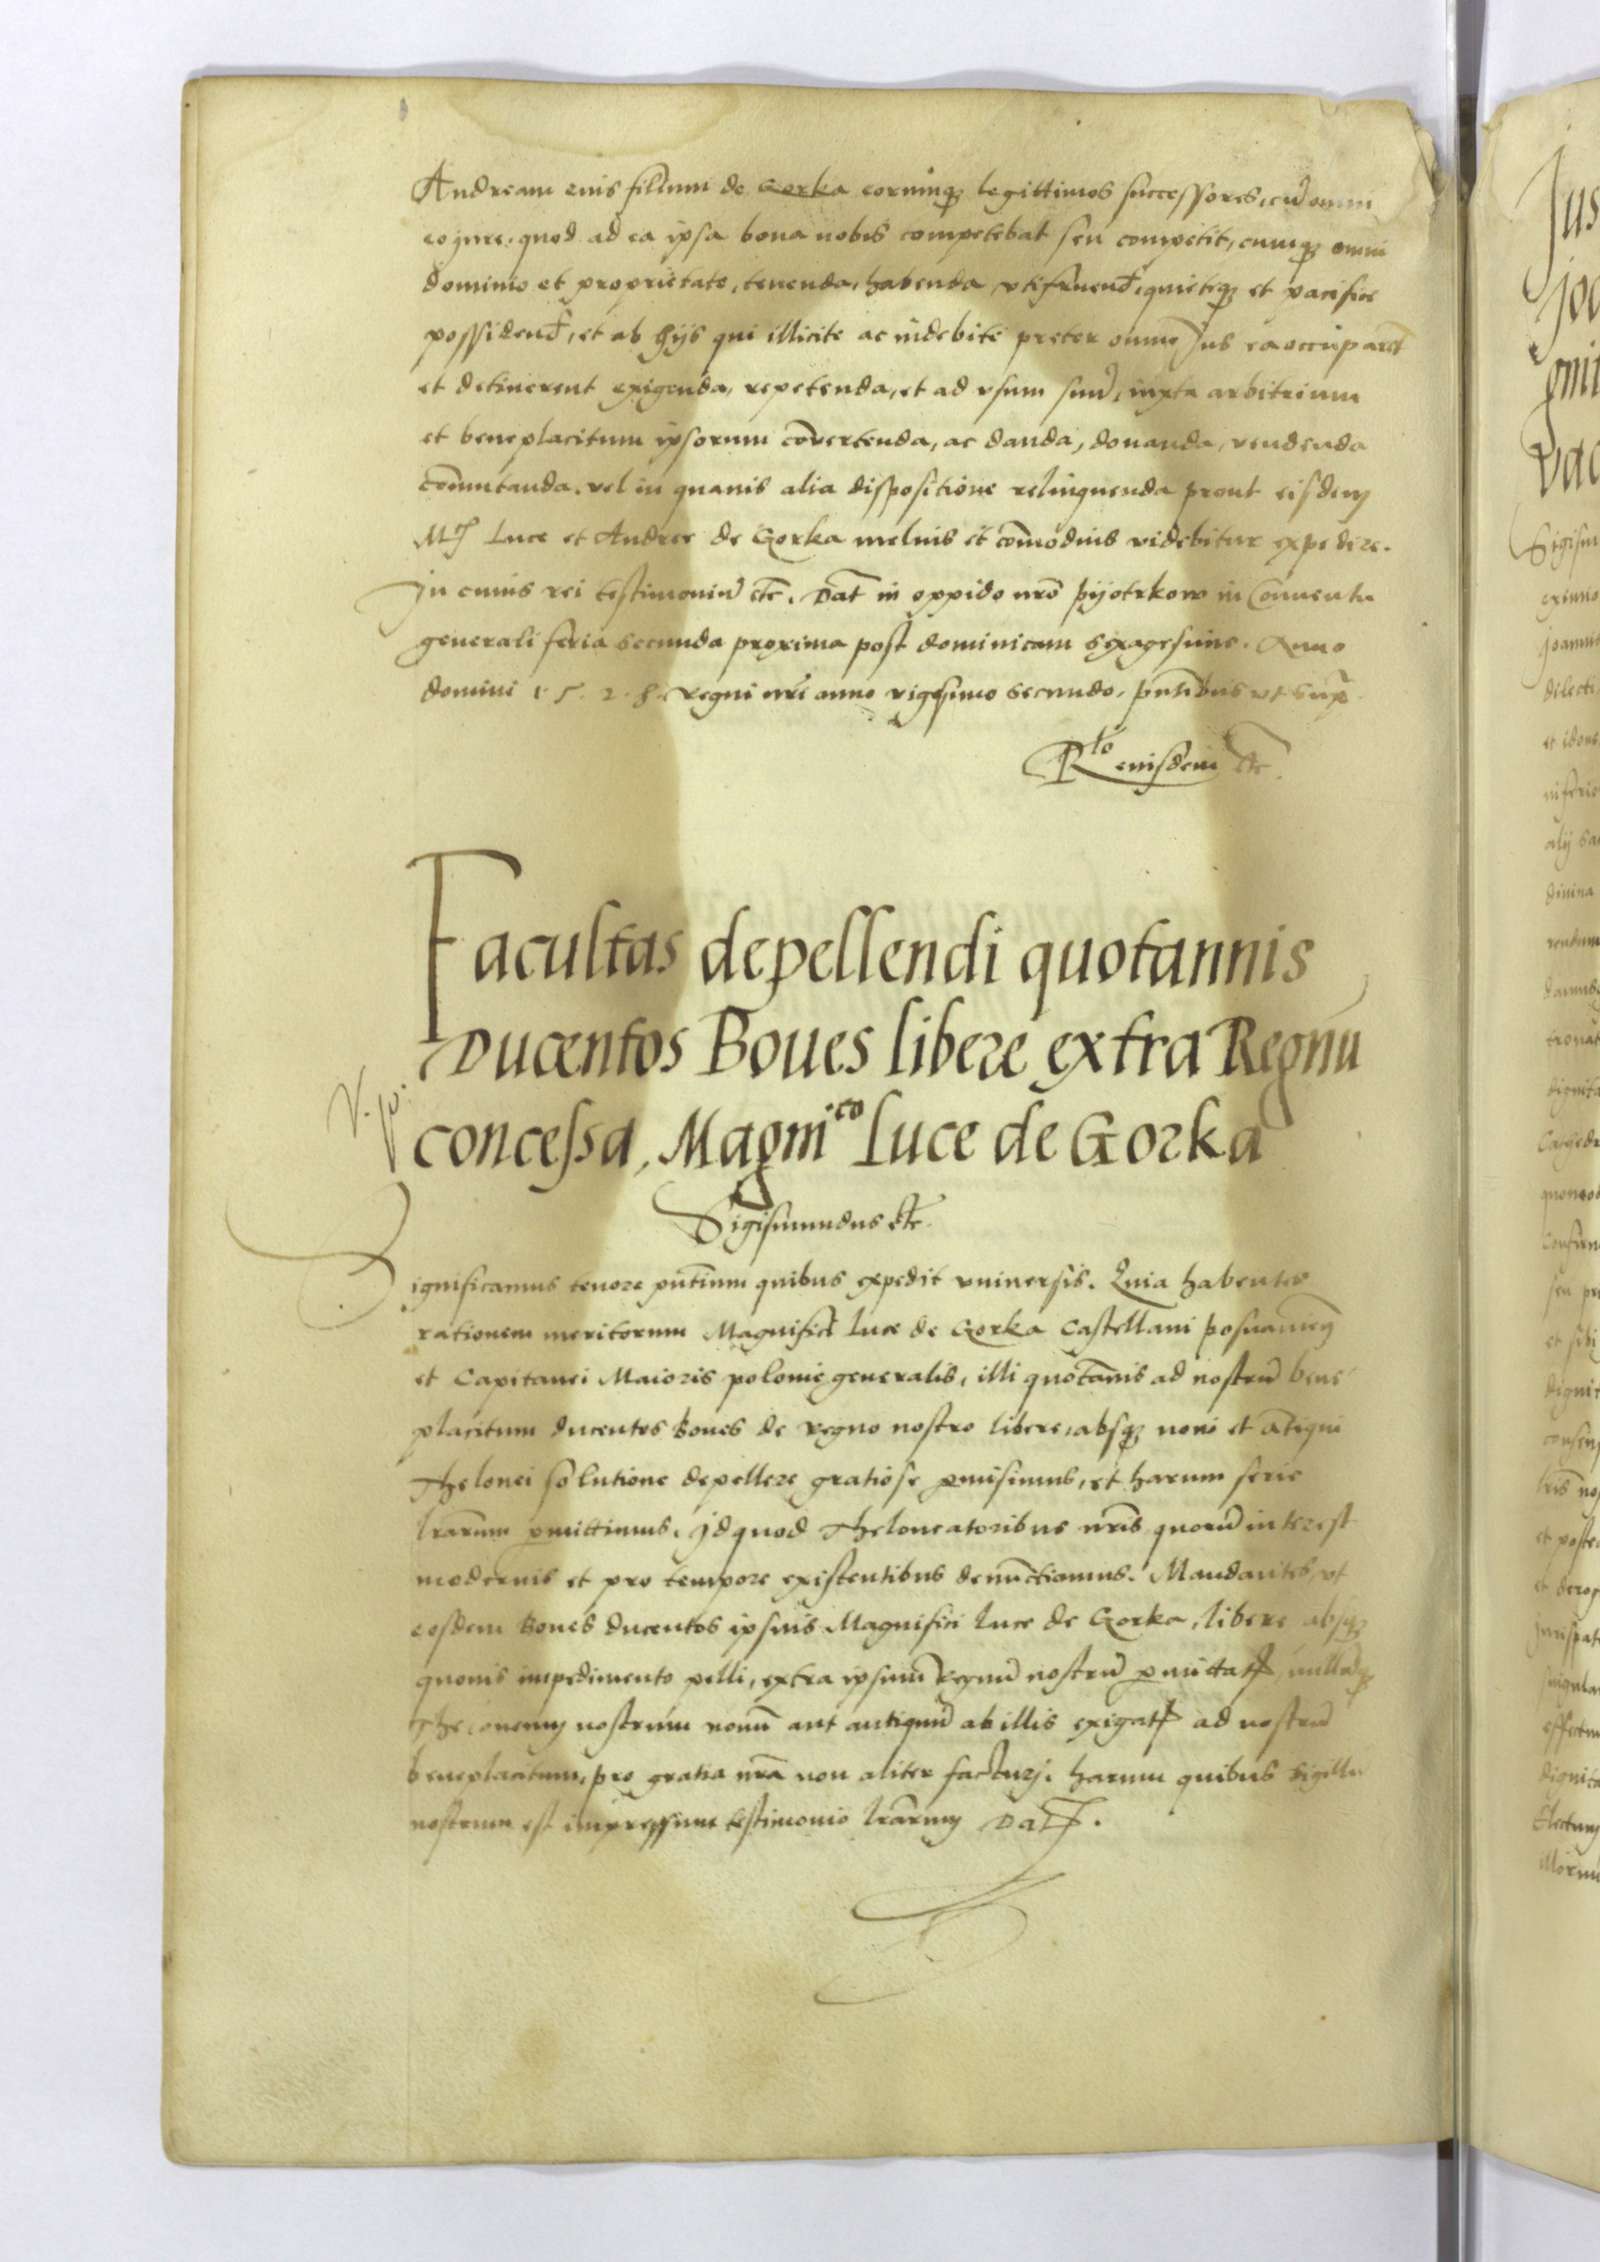 Andream eius filium de Gorka eorumq; legittimos successores, cū omni
eo jure, quod ad ea ipsa bona nobis competebat seu competit, cumq; omni
dominio et proprietate, tenenda, habenda, vtifruend, quieteq; et pacifice
possidend, et ab hijs qui illicite ac indebite preter omne Jus ea occuparēt
et detinerent exigenda, repetenda, et ad vsum suū, iuxta arbitrium
et beneplacitum ipsorum cōvertenda, ac danda, donanda, vendenda
cōmutanda, vel in quauis alia dispositione relinquenda prout eisdem
Mcis Luce et Andree de Gorka melius et cōmodius videbitur expedire.
In cuius rei testimoniū etc. Dat in oppido nrō Pyotrkow in Conuentu
generali feria secunda proxima post dominicam sexagesime. Anno
domini 1528. Regni nrī anno vigesimo secundo, pn̄tibus vt supra
Rlo eiusdem etc.
Facultas depellendi quotannis
Ducentos Boues libere extra Regnū
concessa, Magnico Luce de Gorka
V.
Sigismundus etc.
Significamus tenore pn̄tium quibus expedit vniuersis. Quia habentes
rationem meritorum Magnifici Luce de Gorka Castellani Posnanien
et Capitanei Maioris polonie generalis, illi quotānis ad nostrū bene
placitum ducentos Boues de regno nostro libere, absq; noui et ātiqui
Thelonei solutione depellere gratiose pmisimus, et harum serie
lrārum pmittimus. Id quod Theloneatoribus nrīs quorū interest
modernis et pro tempore existentibus denūctiamus. Mandantes, vt
eosdem Boues ducentos ipsius Magnifici Luce de Gorka, libere absq;
quouis impedimento pelli, extra ipsum Regnū nostrū pmittatis, nullūq;
Theloneum nostrum nouū aut antiquū ab illis exigatis ad nostrū
beneplacitum, pro gratia nrā non aliter facturi. harum quibus sigillū
nostrum est impressum testimonio lrārum Dat.